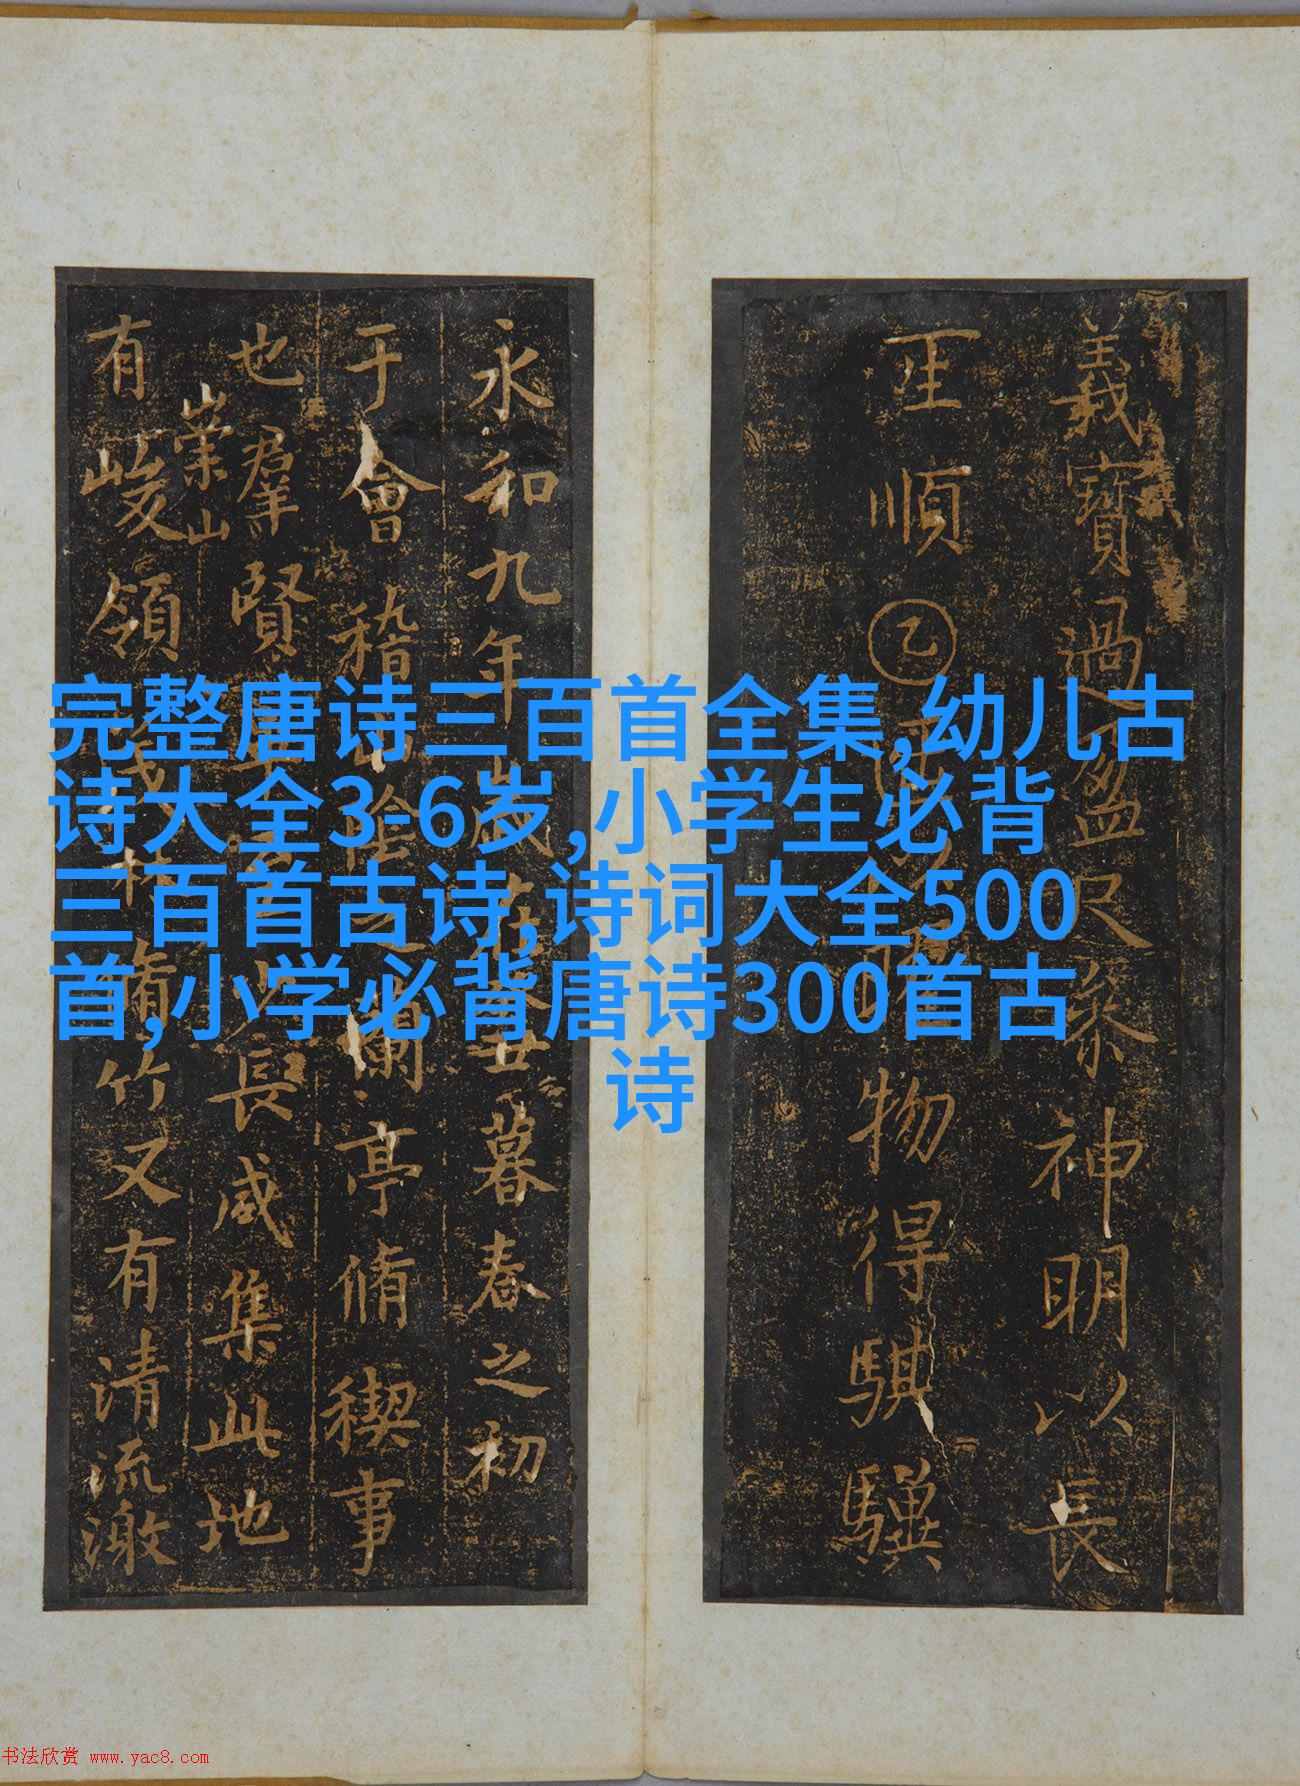 完整唐诗三百首全集,幼儿古
诗大全3-6岁,小学生必背
三百首古诗,诗词大全500
首,小学必背唐诗300首古
诗
義寶過盈尺神明以長
順乙物得騏驥
永和九年歲在癸丑暮春之初
于會稽山陰之蘭亭脩禊事
也羣賢畢至少長咸集此地
崇山
有峻領茂林脩竹又有清流激
书法欣赏 www.yac8.com